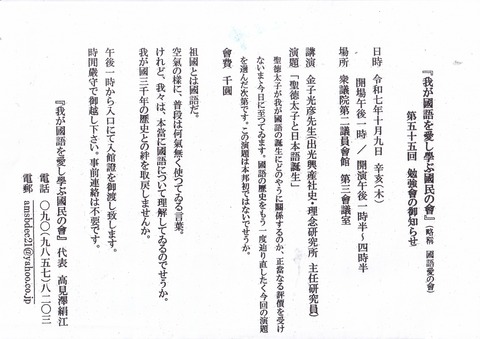 『我が國語を愛し學ぶ國民の會』(略稱 國語愛の會)
第五十五回 勉強會の御知らせ
日時 令和七年十月十九日 辛亥(木)
開場午後一時／開演午後一時半～四時半
場所 衆議院第二議員會館 第三會議室
講演 金子光彦先生(出光興産社史・理念研究所 主任研究員)
演題 「聖徳太子と日本語誕生」
聖徳太子が我が國語の誕生にどのやうに關係するのか、正當なる評價を受け
ないまと今日に至つてゐます。國語の歷史をもう一度辿り直したく今回の演題
を選んだ次第です。この演題は本邦初ではないでせうか。
會費 千圓
祖國とは國語だ。
空氣の樣に、普段は何氣無く使つてゐる言葉。
けれど、我々は、本當に國語について理解してゐるのでせうか。
我が國三千年の歷史との絆を取戾しませんか。
午後一時から入口にて入館證を御渡し致します。
時間嚴守で御越し下さい。事前連絡は不要です。
『我が國語を愛し學ぶ國民の會』 代表 高見澤絹江
電話 〇九〇(九八五七)八二〇三
電郵 amsbdec21@yahoo.co.jp